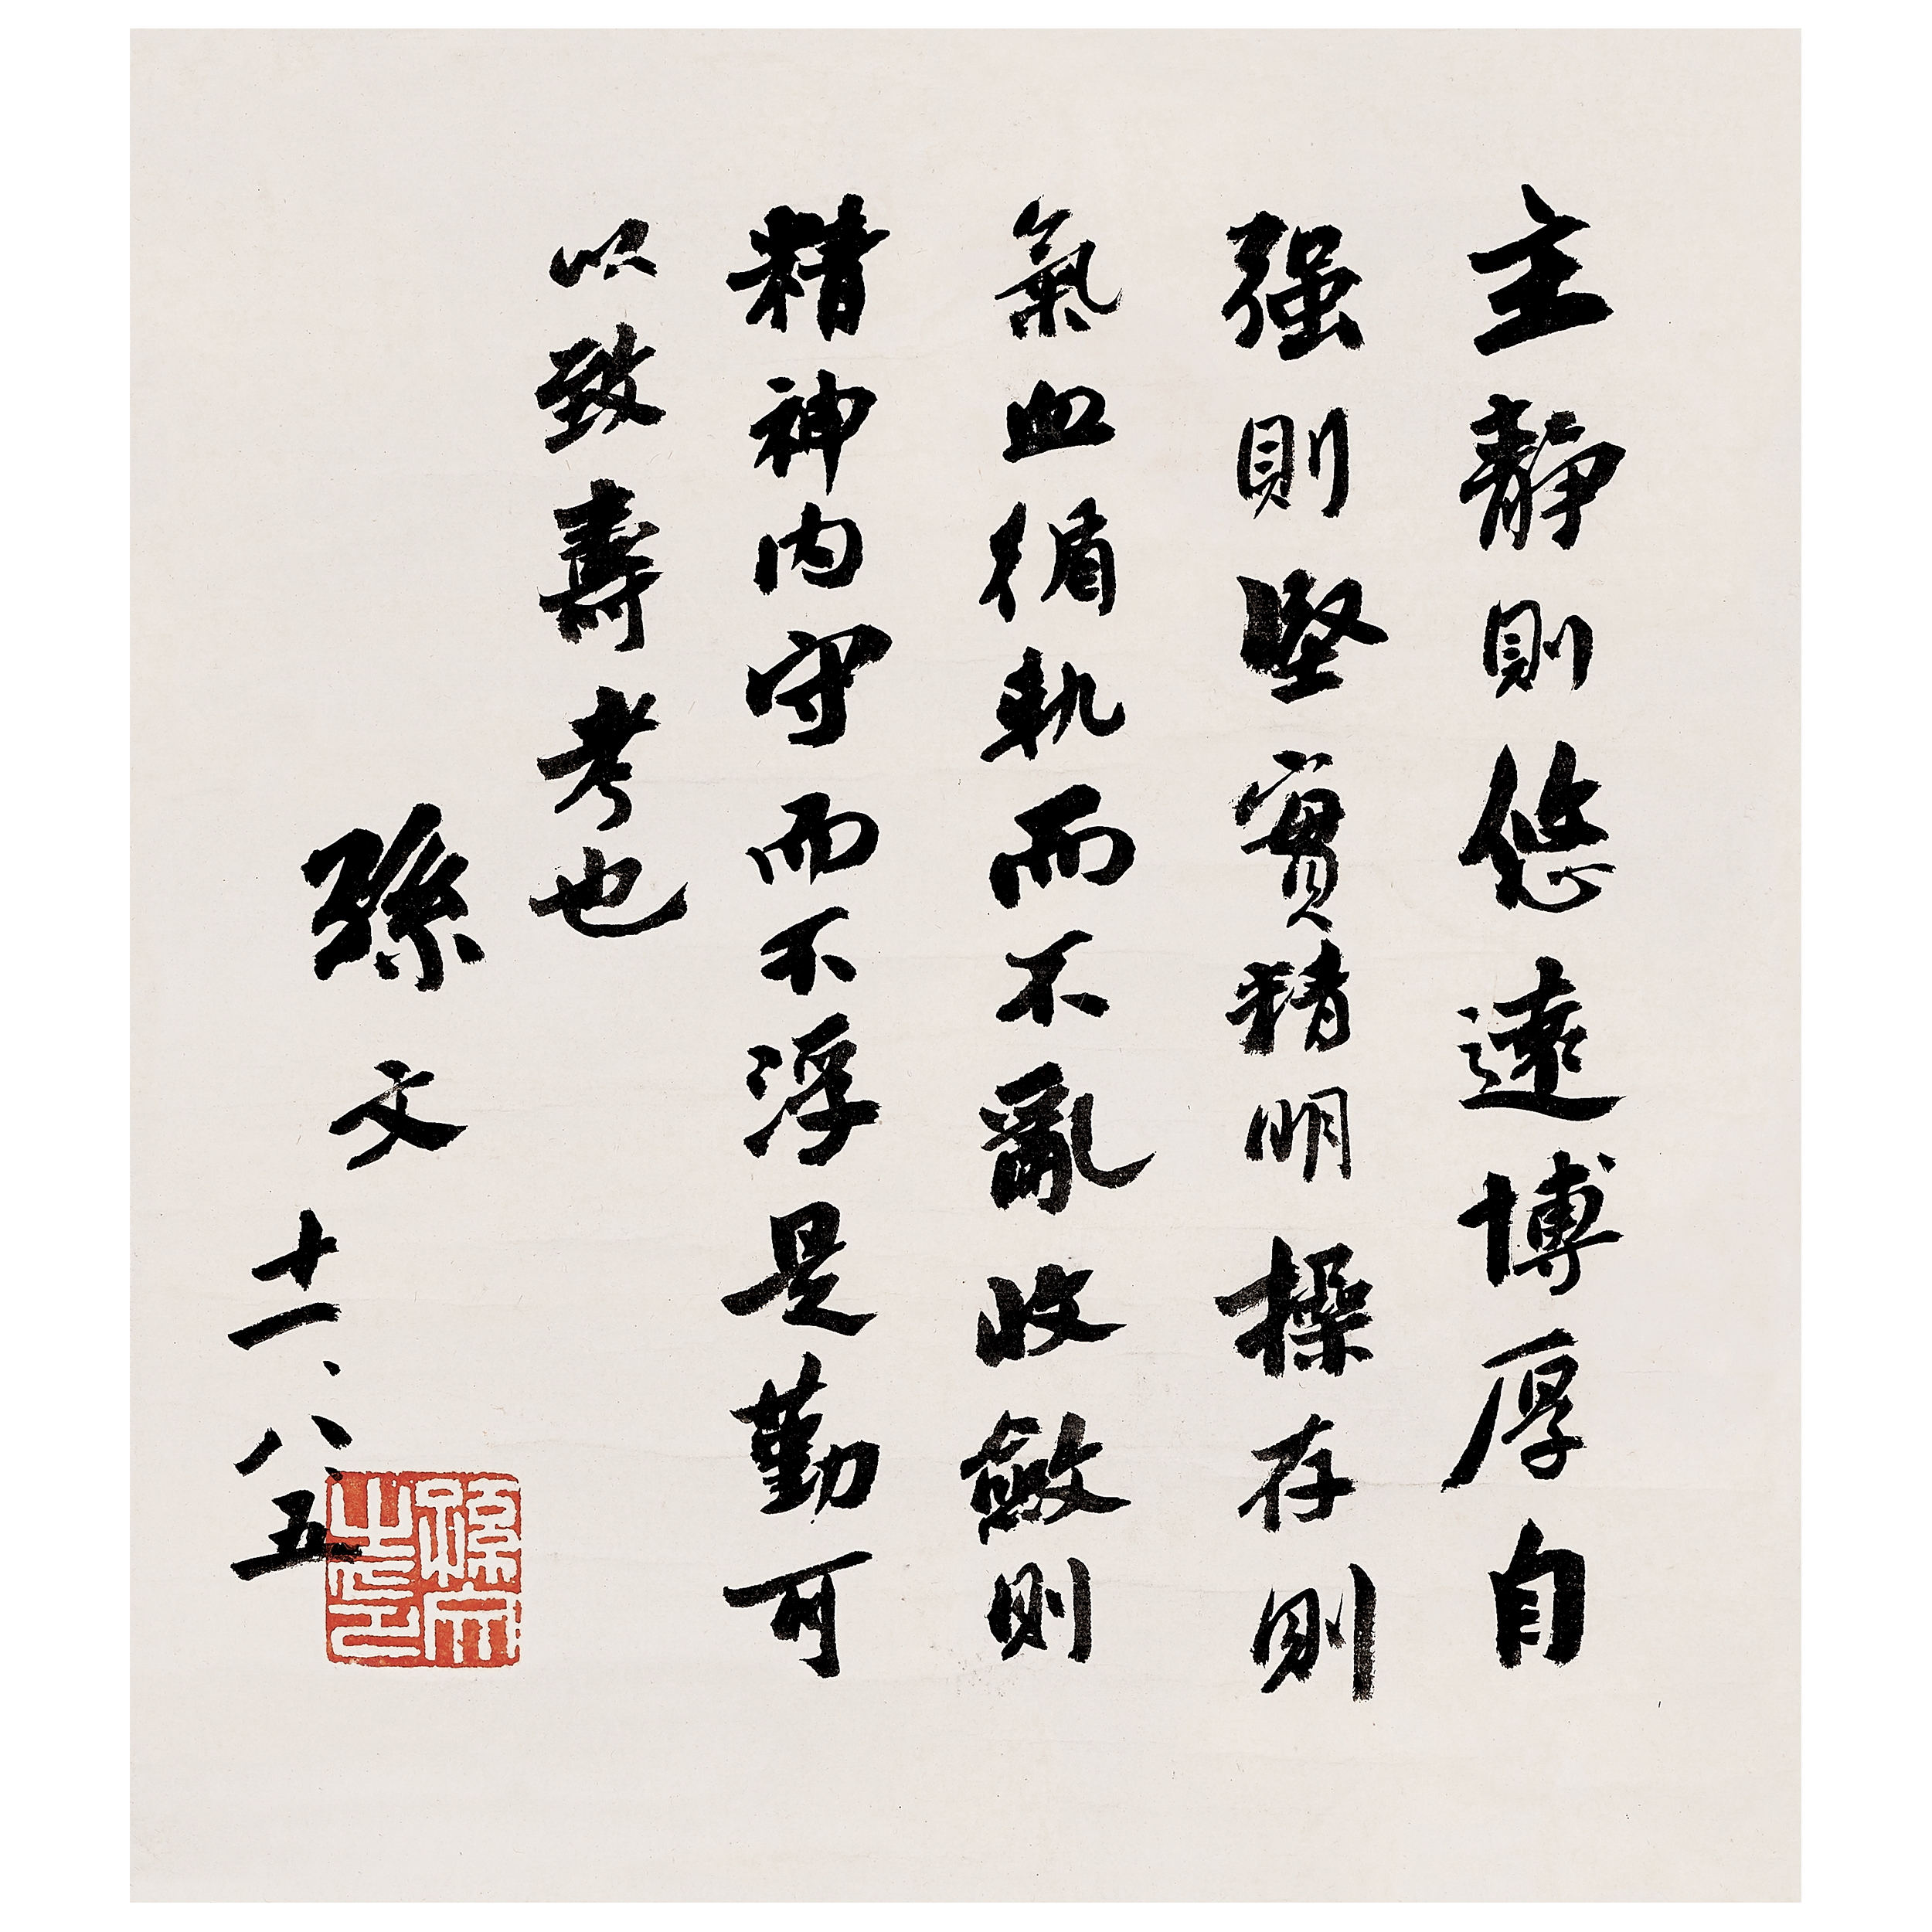 主靜則悠遠博厚自
强則堅實精明操存則
氣血循軌而不亂收斂則
精神内守而不浮是勤可
以致壽考也
孫文
十一、八、五
孫文之印